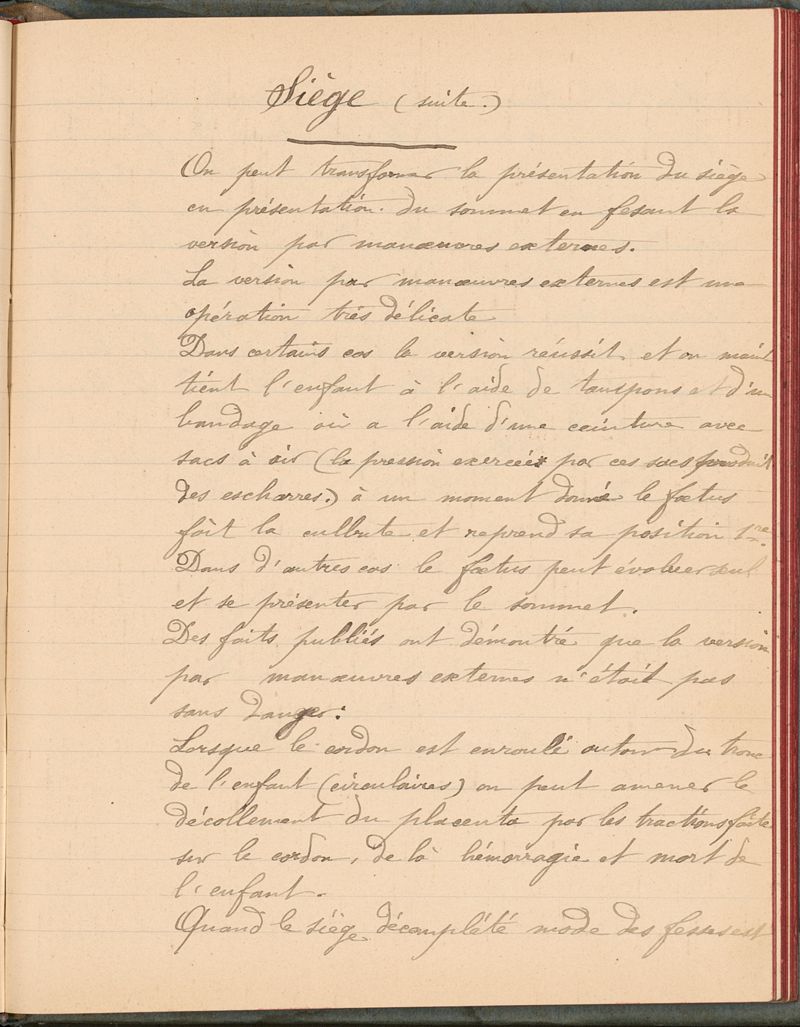 Siège (suite.)
On peut transformer la présentation du siège
en présentation du sommet en fesant la
version par manœuvres externes.
La version par manœuvres externes est une
opération très délicate
Dans certains cas la version réussit et on main
tient l'enfant à l'aide de tampons et d'un
bandage où a l'aide d'une ceinture avec
sacs à air (la pression exercée par ces sacs produit
des escharres.) à un moment donné le fœtus
fait la culbute et reprend sa position 1re.
Dans d'autres cas le fœtus peut évoluer seul
et se présenter par le sommet.
Des faits publiés ont démontré que la version
par manœuvres externes n'était pas
sans danger:
Lorsque le cordon est enroulé autour du tronc
de l'enfant (circulaires) on peut amener le
décollement du placenta par les tractions faite
sur le cordon, de là hémorragie et mort de
l'enfant.
Quand le siège décomplété mode des fesses est